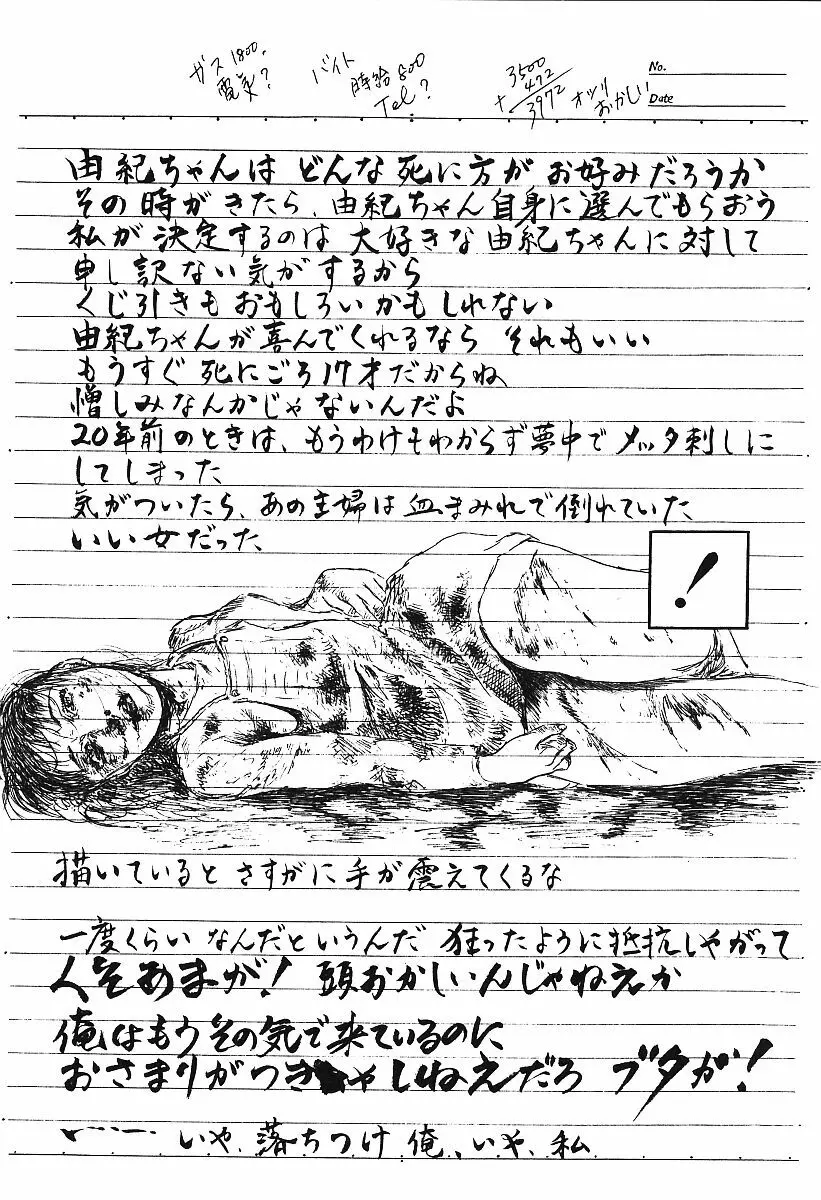 ガス1800.
電気?
バイト
時給800
Tel?
3500
472
+
3972
オツリ
おかしい
No.
Date
由紀ちゃんは どんな死に方が お好みだろうか
その時がきたら、由紀ちゃん自身に選んでもらおう
私が決定するのは 大好きな由紀ちゃんに対して
申し訳ない気がするから
くじ引きもおもしろいかもしれない
由紀ちゃんが喜んでくれるなら それもいい
もうすぐ 死にごろ17才だからね
憎しみなんかじゃないんだよ
20年前のときは、もうわけもわからず夢中でメッタ刺しに
してしまった
気がついたら、あの主婦は血まみれで倒れていた
いい女だった
!
描いていると さすがに手が震えてくるな
一度くらい なんだというんだ 狂ったように抵抗しやがって
人そあまが! 頭おかしいんじゃねえか
俺はもうその気で来ているのに
おさまりがつきゃしねえだろ ブタが!
いや、落ちつけ 俺、いや、私